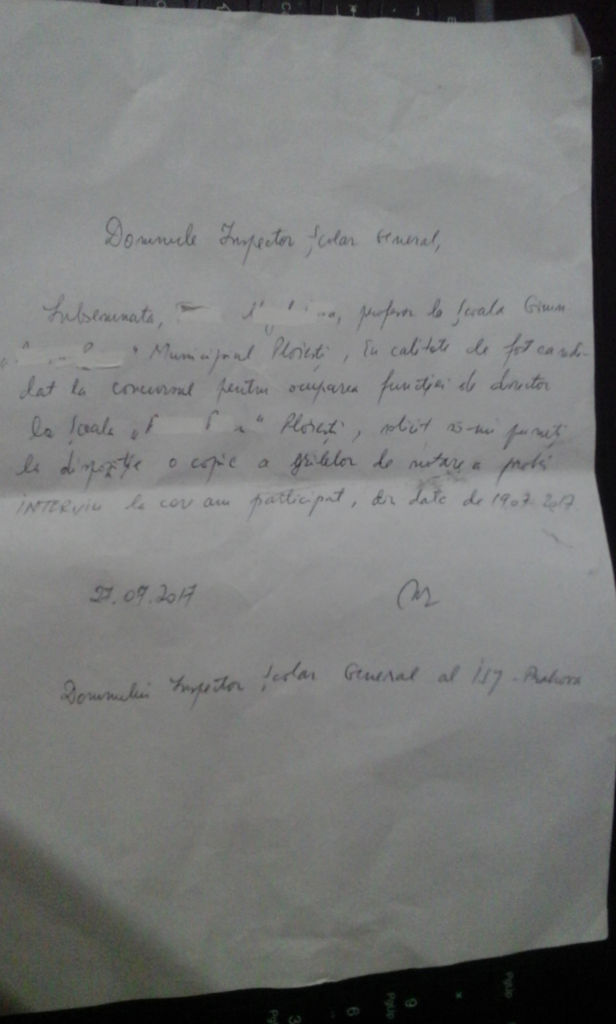 Domnule Inspector Școlar General,
Subsemnata, profesor la Școala Gimn.
" Municipiul Ploiești, în calitate de fost candi-
dat la concursul pentru ocuparea funcției de director
la Școala „ " Ploiești, solicit să-mi puneți
la dispoziție o copie a grilelor de notare a probei
INTERVIU la care am participat, din data de 19.07.2017
27.07.2017
Domnului Inspector Școlar General al ISJ - Prahova